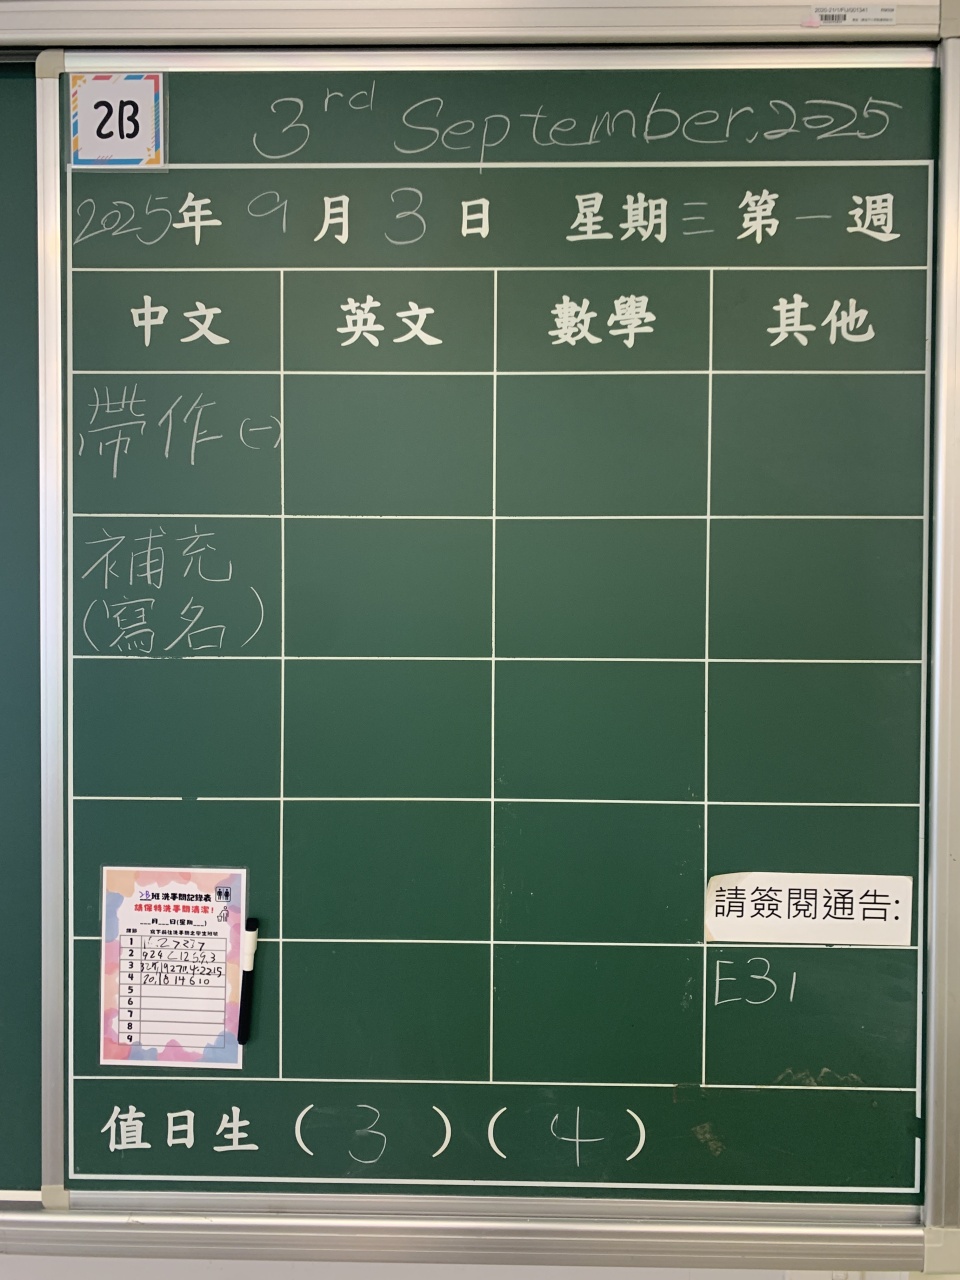 2B
3rd September, 2025
2025年 9 月 3 日 星期三 第一週
中文 英文 數學 其他
帶作(一)
補充
(寫名)
請簽閱通告:
E31
2B班洗手間記錄表
請保持洗手間清潔!
___月___日(星期___)
1
2
3
4 20,18 14 6 10
5
6
7
8
9
值日生 ( 3 ) ( 4 )